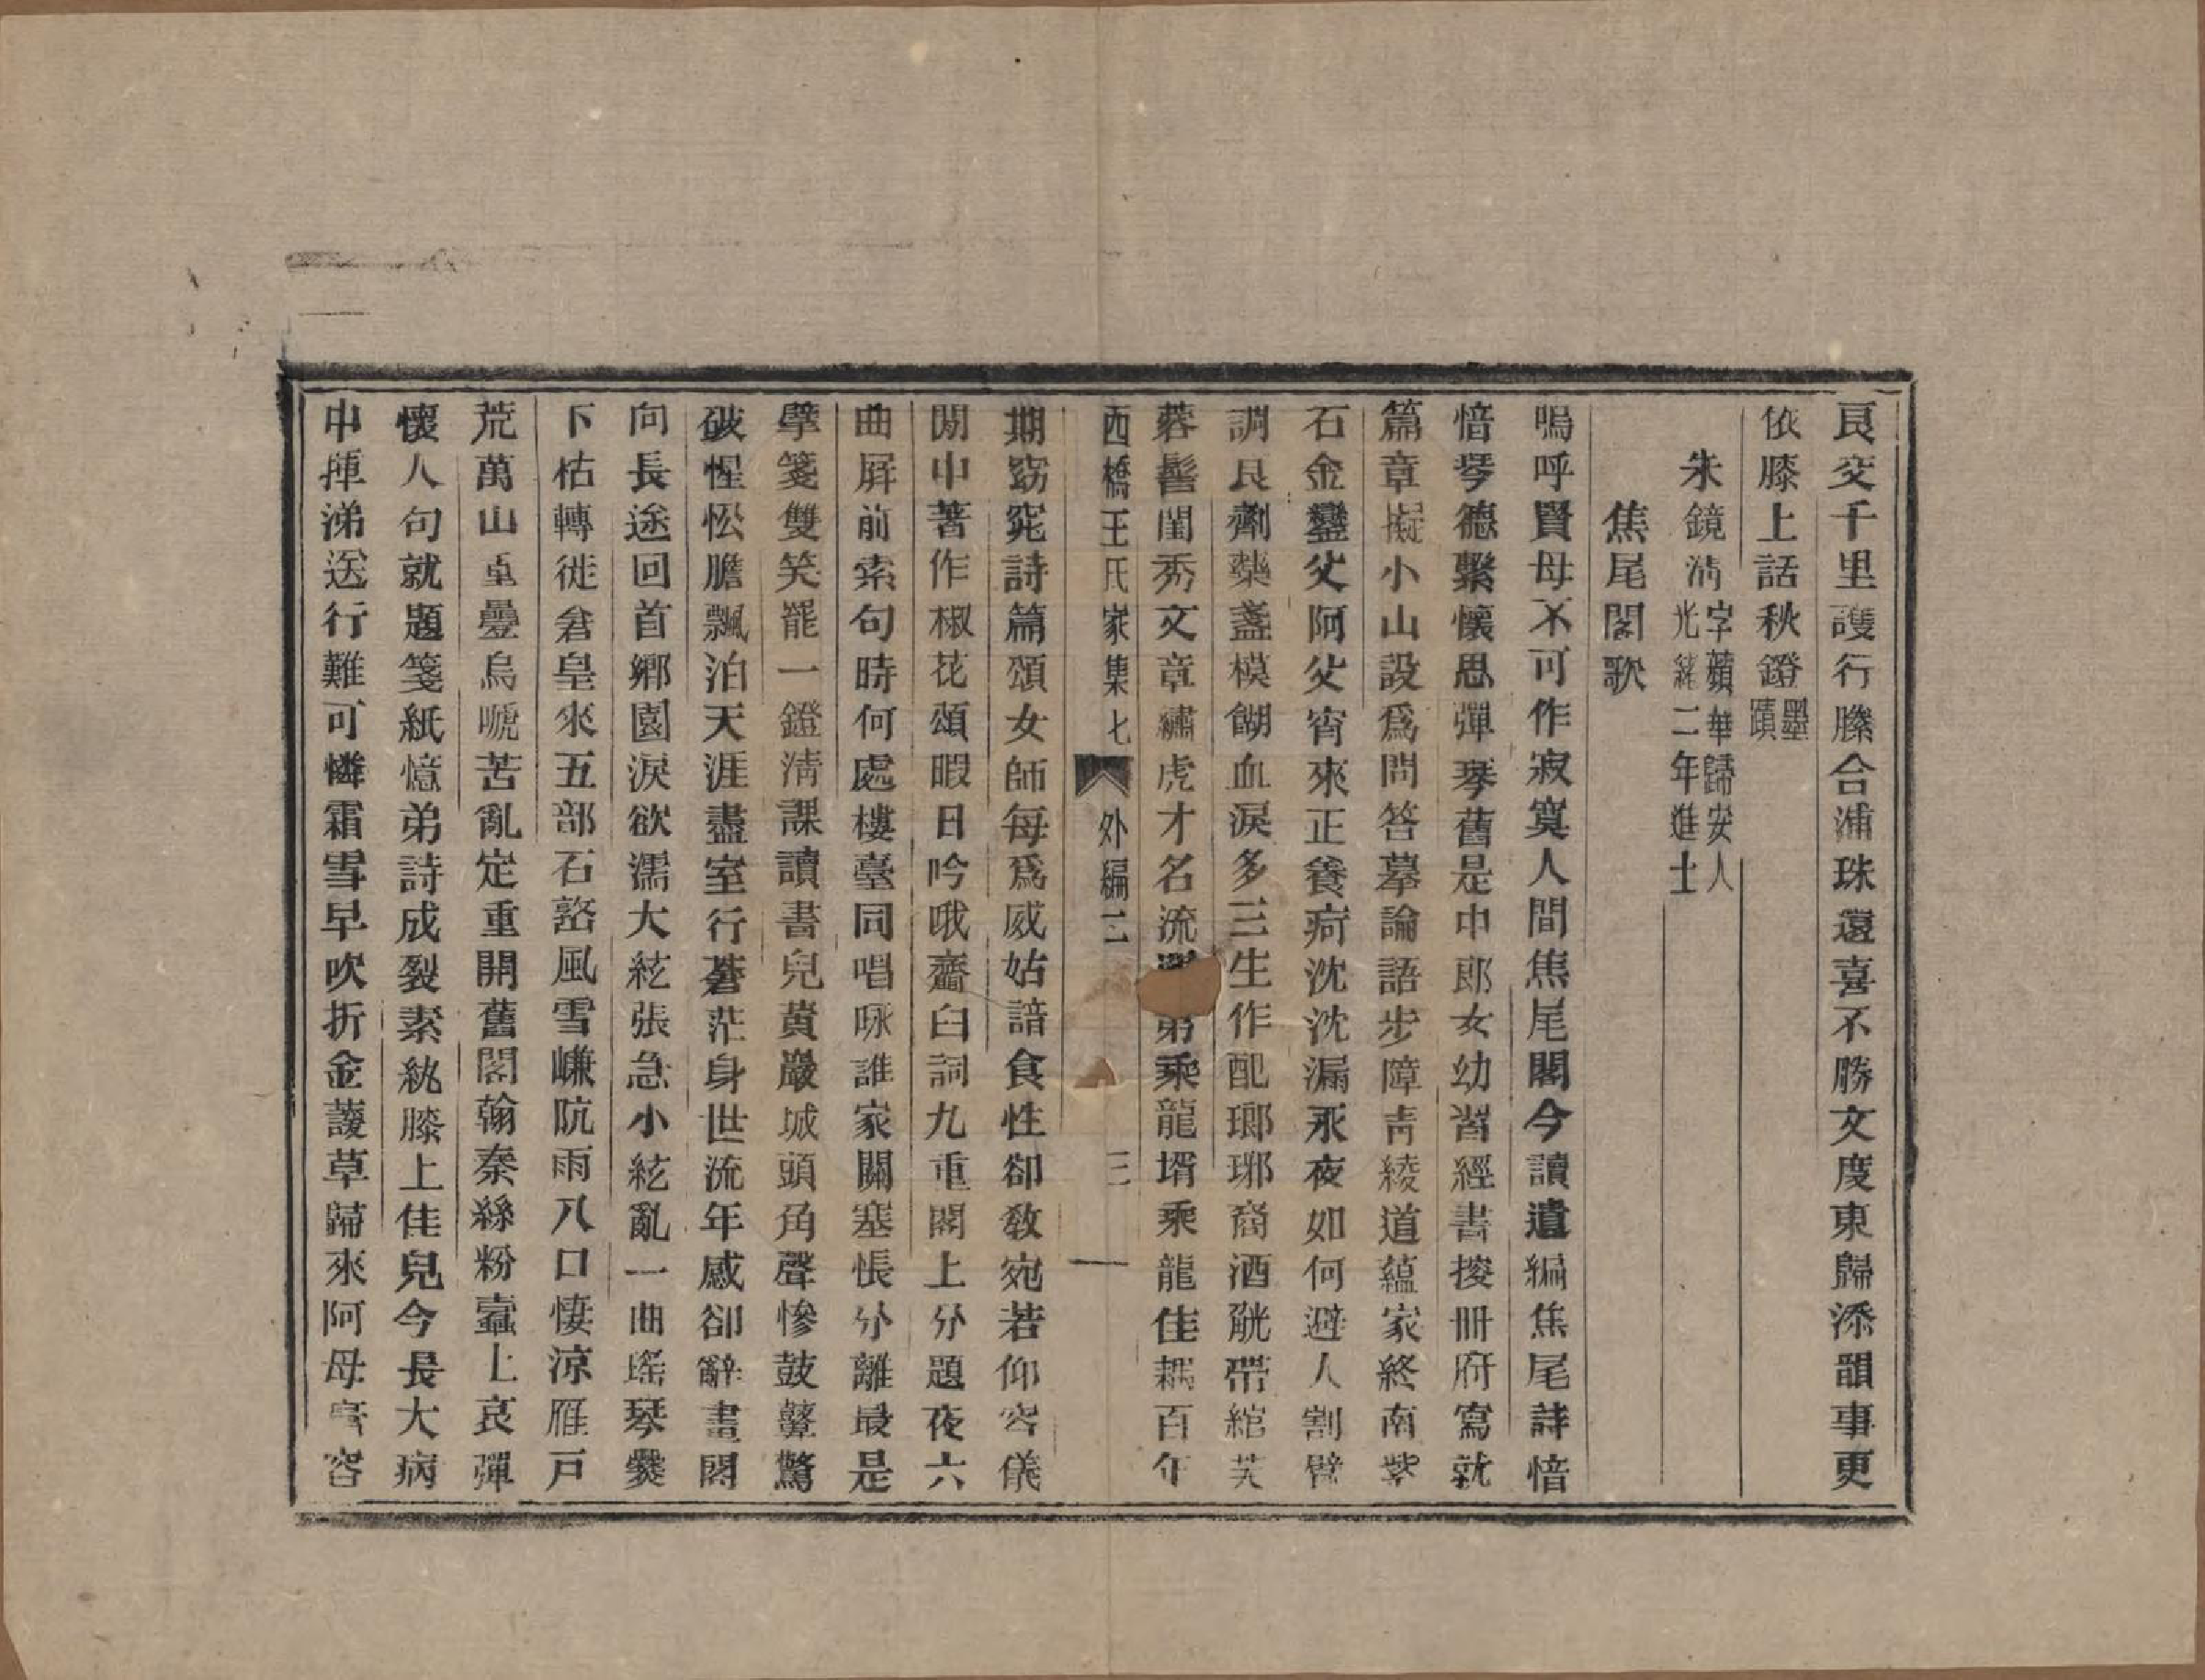 良交千里護行縢合浦珠還喜不勝文度東歸添韻事更
依膝上話秋鐙墨蹟
朱鏡淸字蘋華歸安人光緒二年進士
焦尾閣歌
嗚呼賢母不可作寂寞人間焦尾閣今讀遺編焦尾詩愔
愔琴德繫懷思彈琴舊是中郎女幼習經書掞冊府寫就
篇章擬小山設爲問答摹論語步障靑綾道蘊家終南紫
石金鑾父阿父宵來正養疴沈沈漏永夜如何避人割臂
調良劑藥盞模餬血淚多三生作配瑯琊裔酒觥帶綰芙
蓉髻閨秀文章繡虎才名流弟乘龍壻乘龍佳耦百年
西橋王氏家集七 外編二 三
期窈窕詩篇頌女師每爲威姑諳食性卻敎宛若仰容儀
閒中著作椒花頌暇日吟哦齏臼詞九重閣上分題夜六
曲屛前索句時何處樓臺同唱咏誰家關塞悵分離最是
擘箋雙笑罷一鐙淸課讀書兒黃巖城頭角聲慘鼓鼙驚
破惺忪膽飄泊天涯盡室行蒼茫身世流年感卻辭畫閣
向長途回首鄉園淚欲濡大絃張急小絃亂一曲瑤琴爨
下枯轉徙倉皇來五部石谽風雪嵰阬雨八口悽涼雁戶
荒萬山重疊烏嗁苦亂定重開舊閣翰秦絲粉蠧上哀彈
懷人句就題箋紙憶弟詩成裂素紈膝上佳兒今長大病
中揮涕送行難可憐霜雪早吹折金護草歸來阿母音容